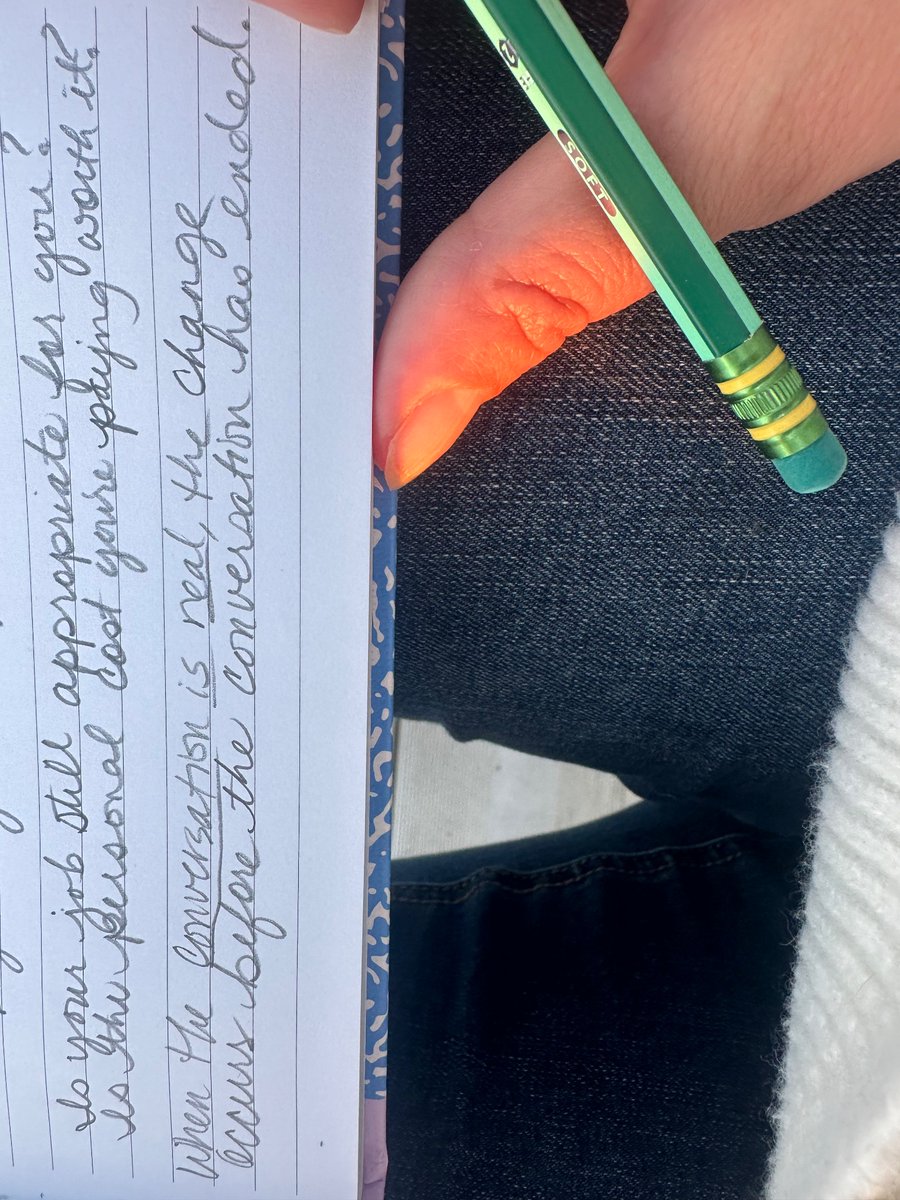 Is your job still appropriate for you?
Is the personal cost you're paying worth it?
When the conversation is real, the change
occurs before the conversation has ended.
SOFT
2